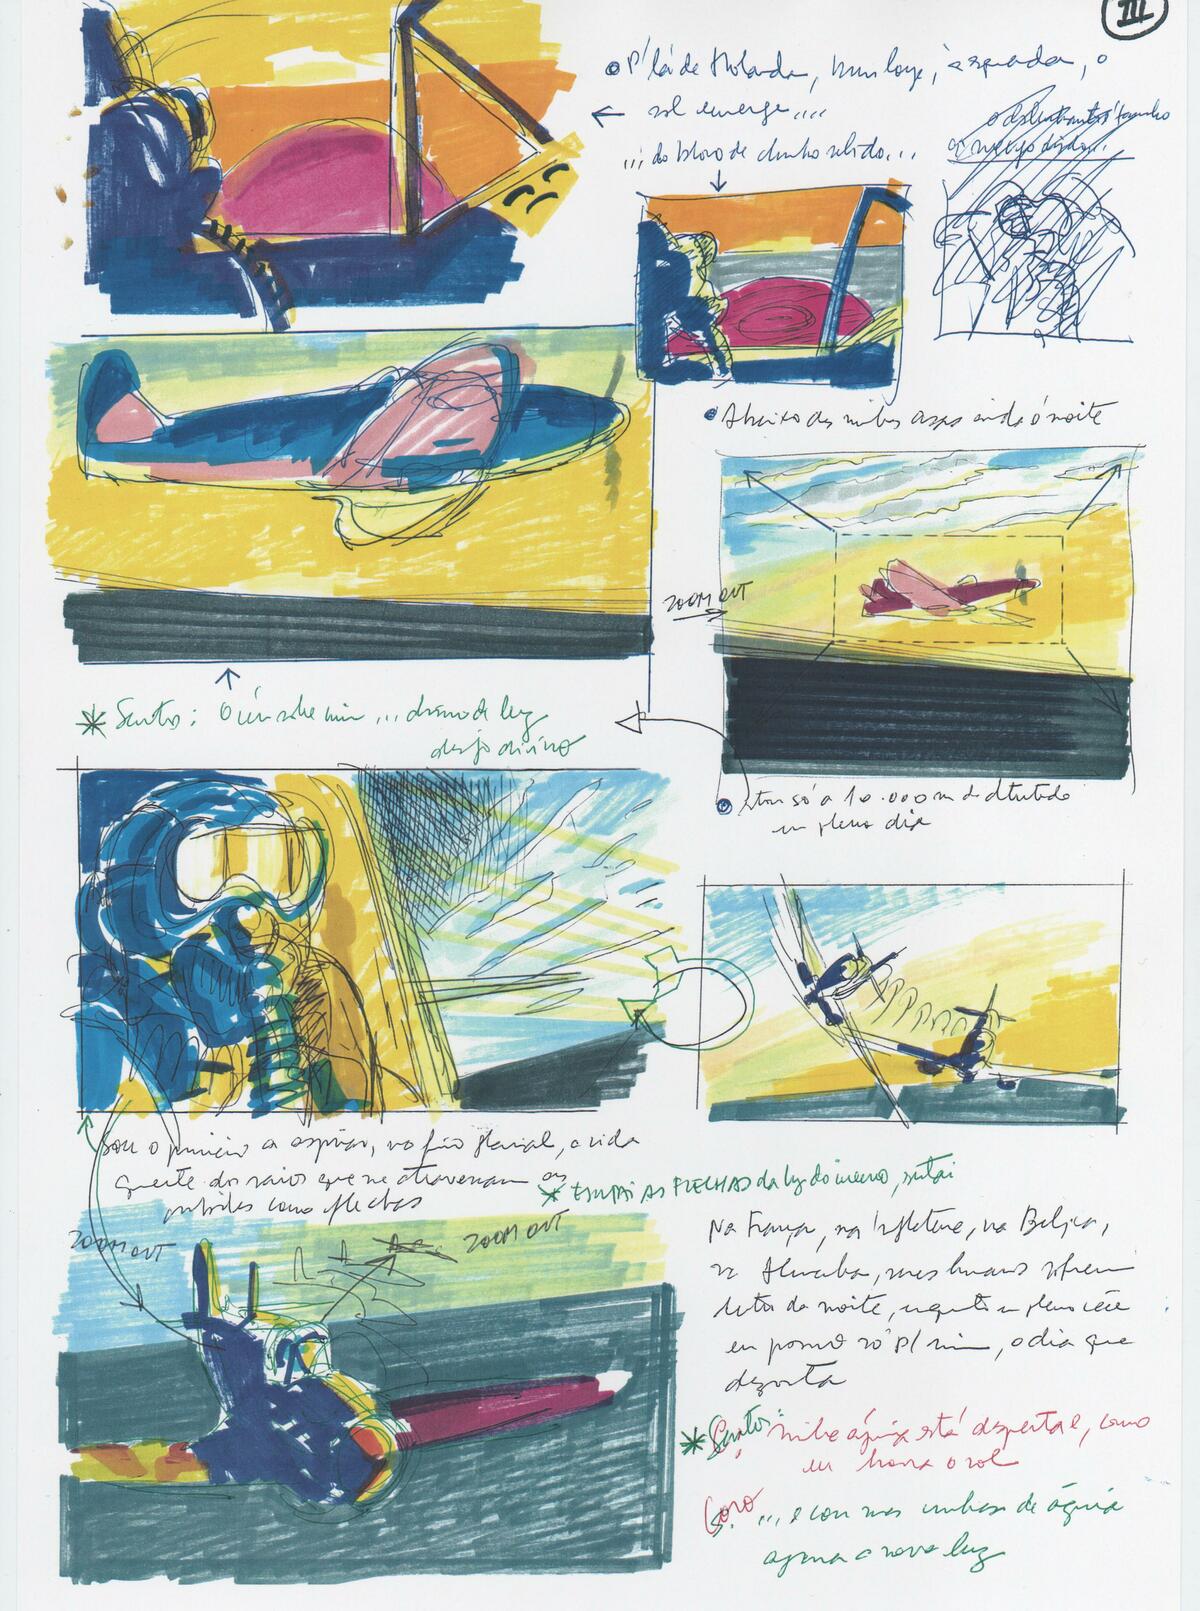 III
P'lá de Holanda, num longe, à esquerda, o
sol emerge....
... do bloco de chumbo sólido...
Abaixo das minhas asas ainda é noite
ZOOM OUT
* Santos: Ó céu sobre mim ... abismo de luz
desejo divino
Estou só a 10.000 m de altitude
em pleno dia
Sou o primeiro a aspirar, no frio glacial, a vida
quente dos raios que me atravessam as
como flechas
* ESCUTAI AS FLECHAS da luz do
ZOOM OUT
ZOOM OUT
Na França, na Inglaterra, na Bélgica,
na Alemanha, meus humanos sofrem
da noite, enquanto em pleno céu
eu possuo só p/ mim, o dia que
desperta
* Santos: Minha águia está desperta e, como
eu honra o sol
Coro
S. ... e com suas unhas de águia
agarra a nova luz